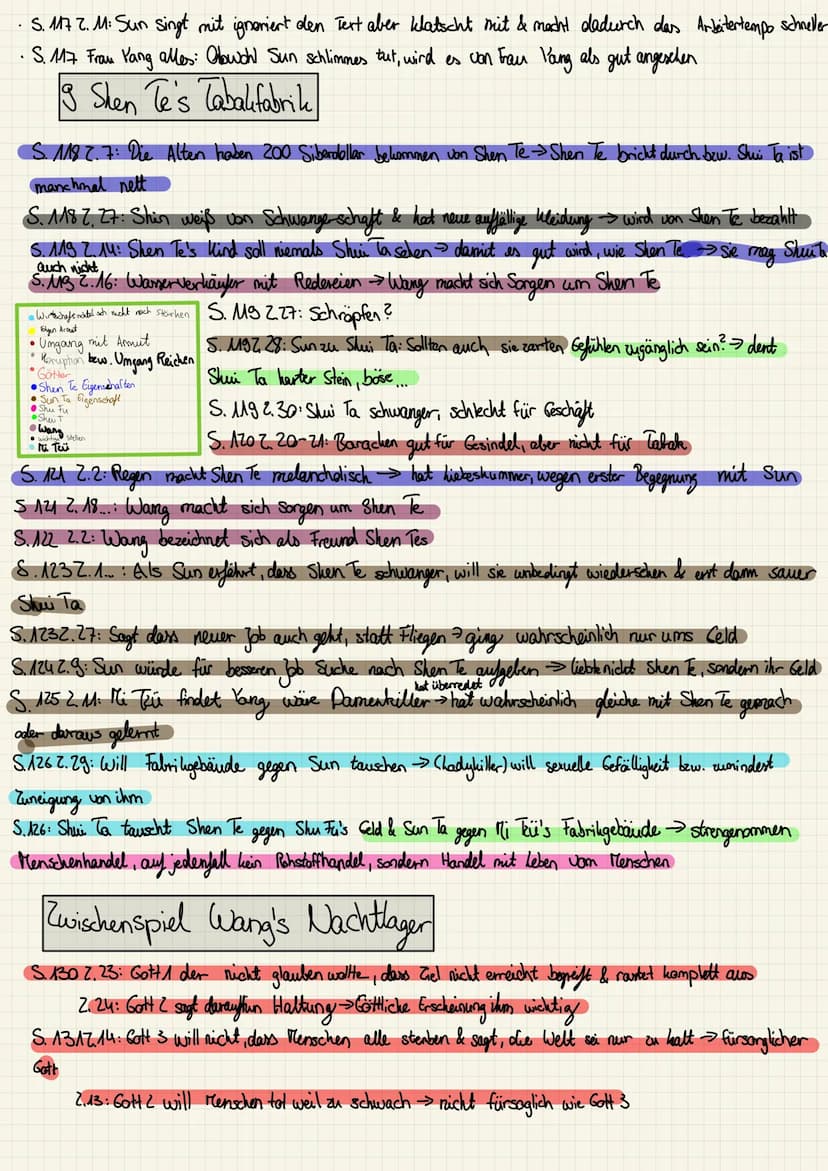 · S. 117 Z. 11: Sun singt mit ignoriert den Text aber klatscht mit & macht dadurch das Arbeitertempo schneller
· S. 117 Frau Yang alles: Obwohl Sun schlimmes tut, wird es von Frau Yang als gut angesehen
9 Shen Te's Tabakfabrik
S. 118 Z. 7: Die Alten haben 200 Siberdollar bekommen von Shen Te → Shen Te bricht durch bzw. Shui Ta ist
manchmal nett
S. 118 Z. 27: Shin weiß von Schwangerschaft & hat neue auffällige Kleidung → wird von Shen Te bezahlt
S. 119 Z. 14: Shen Te's Kind soll niemals Shui Ta sehen → damit es gut wird, wie Shen Te → sie mag Shui Ta
auch nicht
S. 119 Z. 16: Wasserverkäufer mit Redereien → Wang macht sich Sorgen um Shen Te
S. 119 Z. 27: Schröpfen?
S. 119 Z. 28: Sun zu Shui Ta: Sollten auch sie zarten Gefühlen zugänglich sein? → denkt
Shui Ta harter Stein, böse...
S. 119 Z. 30: Shui Ta schwanger, schlecht für Geschäft
S. 120 Z. 20-21: Baracken gut für Gesindel, aber nicht für Tabak
• Eigen Armut
• Umgang mit Armut
• Korruption bzw. Umgang Reichen
• Götter
• Shen Te Eigenschaften
• Sun Ta Eigenschaft
• Shu Fu
• Shui T
• Wang
• wichtige Stellen
• Mi Tzü
S. 121 Z. 2: Regen macht Shen Te melancholisch → hat Liebeskummer, wegen erster Begegnung mit Sun
S 121 Z. 18...: Wang macht sich Sorgen um Shen Te
S. 122 Z. 2: Wang bezeichnet sich als Freund Shen Tes
S. 123 Z. 1...: Als Sun erfährt, dass Shen Te schwanger, will sie unbedingt wiedersehen & erst dann sauer
Shui Ta
S. 123 Z. 27: Sagt dass neuer Job auch geht, statt Fliegen → ging wahrscheinlich nur ums Geld
S. 124 Z. 9: Sun würde für besseren Job Suche nach Shen Te aufgeben → liebte nicht Shen Te, sondern ihr Geld
hat überredet
S. 125 Z. 11: Mi Tzü findet Yang wäre Damenkiller → hat wahrscheinlich gleiche mit Shen Te gemach
oder daraus gelernt
S. 126 Z. 29: Will Fabrikgebäude gegen Sun tauschen → (Ladykiller) will sexuelle Gefälligkeit bzw. zumindest
Zuneigung von ihm
S. 126: Shui Ta tauscht Shen Te gegen Shu Fu's Geld & Sun Ta gegen Mi Tzü's Fabrikgebäude → strenggenommen
Menschenhandel, auf jedenfall kein Rohstoffhandel, sondern Handel mit Leben vom Menschen
Zwischenspiel Wang's Nachtlager
S. 130 Z. 23: Gott 1 der nicht glauben wollte, dass Ziel nicht erreicht begreift & rastet komplett aus
Z. 24: Gott 2 sagt daraufhin Haltung → Göttliche Erscheinung ihm wichtig
S. 131 Z. 14: Gott 3 will nicht, dass Menschen alle sterben & sagt, die Welt sei nur zu kalt → fürsorglicher
Gott
Z. 13: Gott 2 will Menschen tot weil zu schwach → nicht fürsoglich wie Gott 3